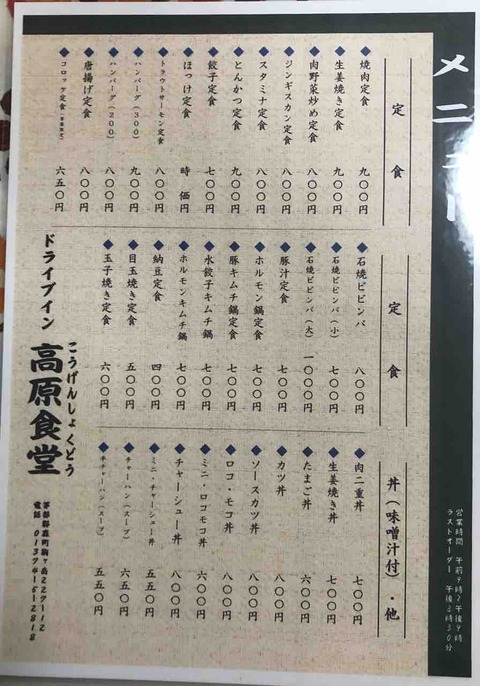 メニュー
営業時間 午前9時~午後9時
ラストオーダー 午後8時30分
定食
焼肉定食 九〇〇円
生姜焼き定食 九〇〇円
肉野菜炒め定食 八〇〇円
ジンギスカン定食 八〇〇円
スタミナ定食 八〇〇円
とんかつ定食 九〇〇円
餃子定食 七〇〇円
ほっけ定食 時価円
トラウトサーモン定食 八〇〇円
ハンバーグ(300) 九〇〇円
ハンバーグ(200) 八〇〇円
唐揚げ定食 八〇〇円
コロッケ定食 六五〇円
定食
石焼ビビンバ 八〇〇円
石焼ビビンバ(小) 七〇〇円
石焼ビビンバ(大) 一〇〇〇円
豚汁定食 七〇〇円
ホルモン鍋定食 七〇〇円
豚キムチ鍋定食 七〇〇円
水餃子キムチ鍋 七〇〇円
ホルモンキムチ鍋 七〇〇円
納豆定食 四〇〇円
目玉焼き定食 五〇〇円
玉子焼き定食 六〇〇円
丼(味噌汁付)・他
肉二重丼 七〇〇円
生姜焼き丼 七〇〇円
たまご丼 六〇〇円
カツ丼 八〇〇円
ソースカツ丼 八〇〇円
ロコ・モコ丼 八〇〇円
ミニ・ロコモコ丼 六〇〇円
チャーシュー丼 八〇〇円
ミニ・チャーシュー丼 五五〇円
チャーハン(スープ) 六五〇円
半チャーハン(スープ) 五五〇円
ドライブイン
こうげんしょくどう
高原食堂
茅部郡森町駒ヶ岳229-12
電話 01374-5-2818